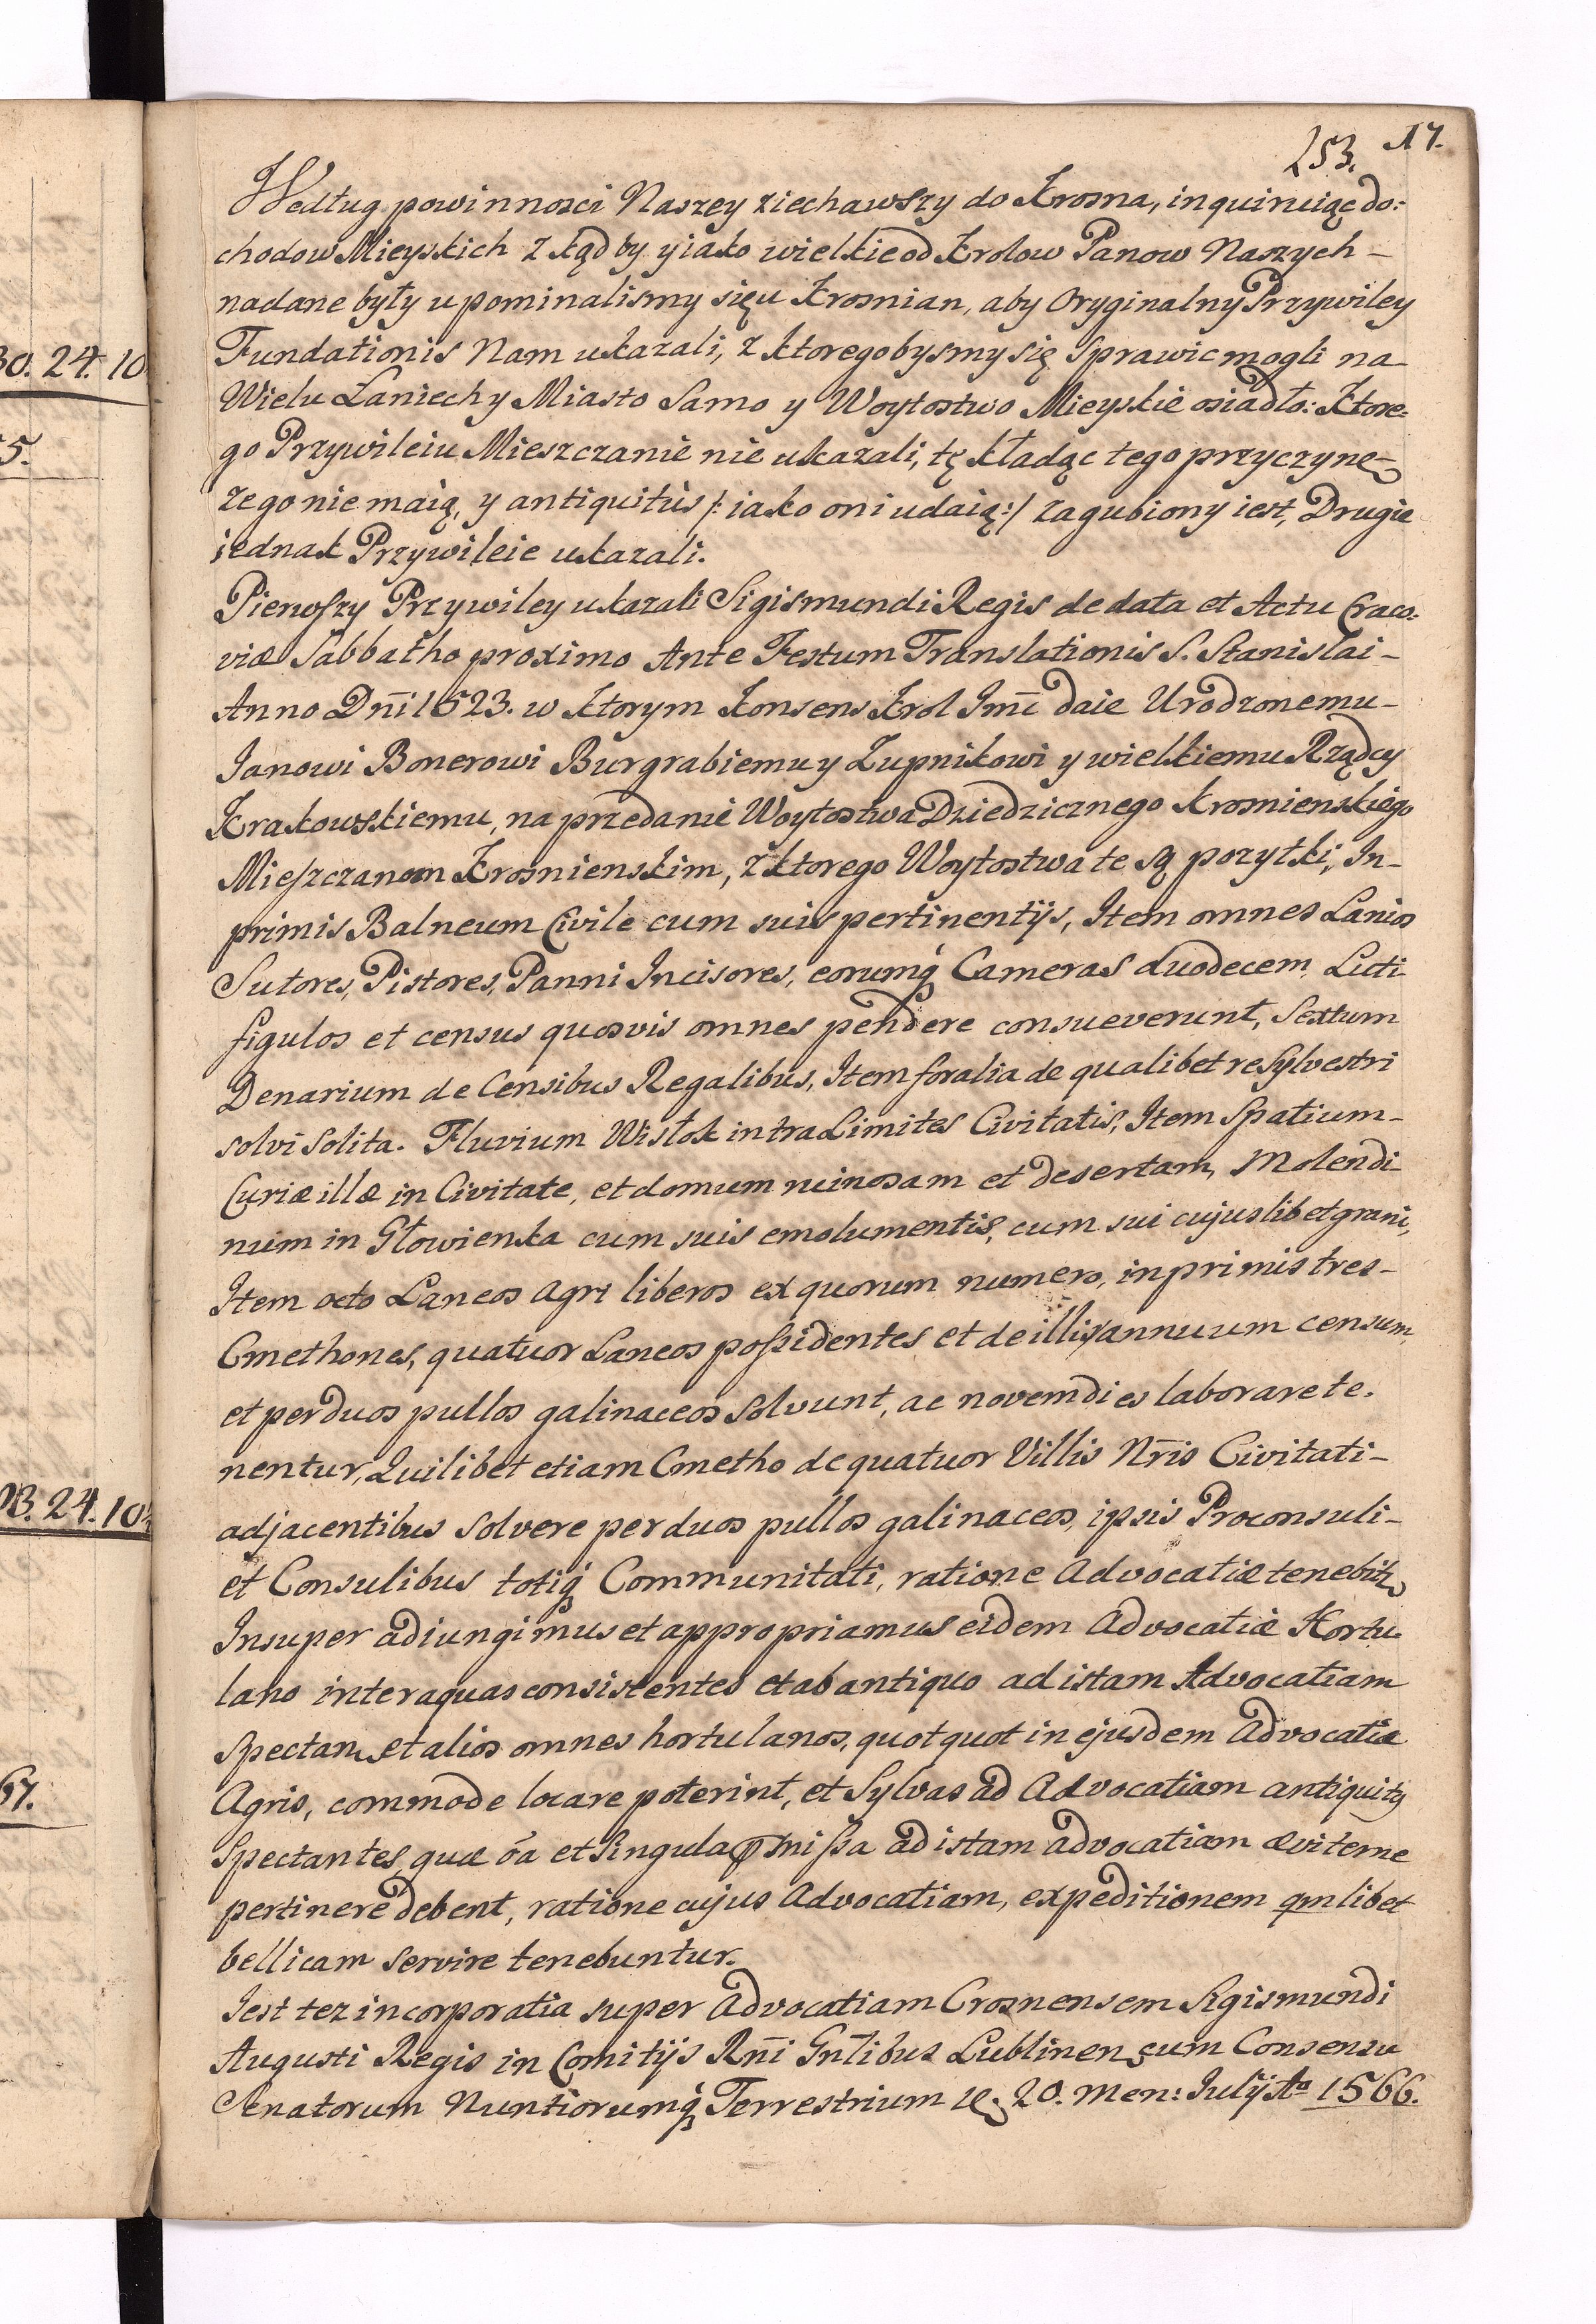 253. 17.
Według powinnosci Naszey ziechawszy do Krosna, inquiruiąc do:
chodow Mieyskich z kąd by y iako wielkie od Krolow Panow Naszych –
nadane były upominalismy się u Krosnian, aby Oryginalny Przywiley
Fundationis Nam ukazali, z ktorego bysmy się sprawic mogli na
Wielu Łaniech y Miasto Samo y Woytostwo Mieyskie osiadło: Ktore:
go Przywileiu Mieszczanie nie ukazali, tę kładąc tego przyczynę
że go nie maią, y antiquitùs /: iako oni udaią :/ zagubiony iest, Drugie
iednak Przywileie ukazali.
Pierwszy Przywiley ukazali Sigismundi Regis de data et Actu Craco:
viæ Sabbatho proximo Ante Festum Translationis S. Stanislai –
Anno Dni 1523. w ktorym Konsens Krol Jmc daie Urodzonemu –
Janowi Bonerowi Burgrabiemu y Zupnikowi y wielkiemu Rządcy
Krakowskiemu, na przedanie Woytostwa Dziedzicznego Krosnienskiego
Mieszczanom Krosnienskim, z ktorego Woytostwa te są pozytki, In-
primis Balneum Civile cum suis pertinentijs, Item omnes Lanios
Sutores, Pistores, Panni Incisores, eorumq́ Cameras duodecem Luti
figulos et census quosvis omnes pendere consueverunt, Sextum
Denarium de Censibus Regalibus, Item foralia de qualibet re sylvestri
solvi solita. Fluvium Wisłok intra Limites Civitatis, Item Spatium –
Curiæ illæ in Civitate, et domum ruinosam et desertam, Molendi
num in Głowienka cum suis emolumentis, cum sui cujuslibet grani,
Item octo Laneos agri liberos ex quorum numero, inprimis tres –
Cmethones, quatuor Laneos possidentes et de illis annuum censum
et per duos pullos galinaceos solvunt, ac novem dies laborare te.
nentur, Quilibet etiam Cmetho de quatuor Villis Nris Civitati –
adjacentibus solvere per duos pullos galinaceos, ipsis Proconsuli –
et Consulibus totiq́ Communitati, ratione Advocatiæ tenebitr
Insuper adiungimus et appropriamus eidem Advocatiæ Hortu.
lano inter aquas consistentes et ab antiquo ad istam Advocatiam
spectan, et alios omnes hortulanos, quotquot in ejusdem Advocatiæ
Agris, commode locare poterint, et Sylvas ad Advocatiam antiquitq
spectantes, quæ oa et singula pmissa ad istam advocatiam æviterne
pertinere debent, ratione cujus Advocatiam, expeditionem qmlibet
bellicam servire tenebuntur.
Jest tez incorporatia super Advocatiam Crosnensem Sigismundi
Augusti Regis in Comitijs Rni Gnlibus Lublinen cum Consensu
Senatorum Nuntiorumq́ Terrestrium 20. Men: Julij Ao 1566.
30. 24. 10
5.
93. 24. 10
67.